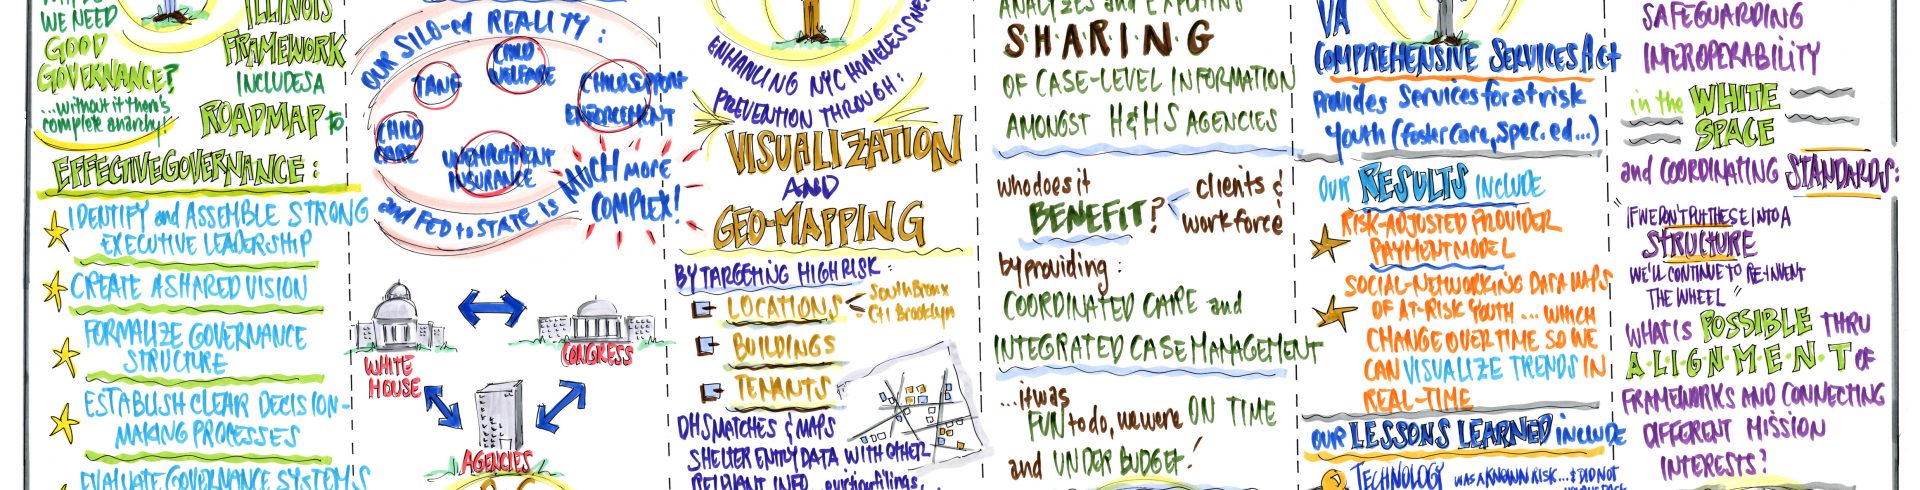 WE NEED
GOOD
GOVERNANCE?
...without it there's
complete anarchy!
ILLINOIS
FRAMEWORK
INCLUDES A
ROADMAP to
EFFECTIVE GOVERNANCE:
IDENTIFY and ASSEMBLE STRONG
EXECUTIVE LEADERSHIP
CREATE A SHARED VISION
FORMALIZE GOVERNANCE
STRUCTURE
ESTABLISH CLEAR DECISION-
MAKING PROCESSES
EVALUATE GOVERNANCE SYSTEMS
OUR SILO-ed REALITY:
TANF
CHILD
WELFARE
CHILD SUPPORT
ENFORCEMENT
CHILD
CARE
UNEMPLOYMENT
INSURANCE
and FED to STATE is MUCH MORE
COMPLEX!
WHITE
HOUSE
CONGRESS
AGENCIES
ENHANCING NYC HOMELESSNESS
PREVENTION THROUGH:
VISUALIZATION
AND
GEO-MAPPING
BY TARGETING HIGH RISK:
LOCATIONS
South Bronx
BUILDINGS
TENANTS
DHS MATCHES & MAPS
SHELTER ENTRY DATA WITH OTHER
RELEVANT INFO...eviction filings,
ANALYZES and EXPLAINS
S.H.A.R.I.N.G
OF CASE-LEVEL INFORMATION
AMONGST H&HS AGENCIES
who does it
BENEFIT?
clients &
workforce
by providing:
COORDINATED CARE and
INTEGRATED CASE MANAGEMENT
...it was
FUN to do, we were ON TIME
and UNDER BUDGET!
VA
COMPREHENSIVE SERVICES ACT
provides services for at risk
youth (foster care, spec. ed...)
OUR RESULTS INCLUDE
RISK-ADJUSTED PROVIDER
PAYMENT MODEL
SOCIAL-NETWORKING DATA MAPS
OF AT-RISK YOUTH... WHICH
CHANGE OVER TIME SO WE
CAN VISUALIZE TRENDS IN
REAL-TIME
OUR LESSONS LEARNED include
TECHNOLOGY WAS A KNOWN RISK...& DID NOT
SAFEGUARDING
INTEROPERABILITY
in the WHITE
SPACE
and COORDINATING STANDARDS:
"IF WE DON'T PUT THESE INTO A
STRUCTURE
WE'LL CONTINUE TO RE-INVENT
THE WHEEL"
WHAT IS POSSIBLE THRU
A.L.I.G.N.M.E.N.T OF
FRAMEWORKS AND CONNECTING
DIFFERENT MISSION
INTERESTS?